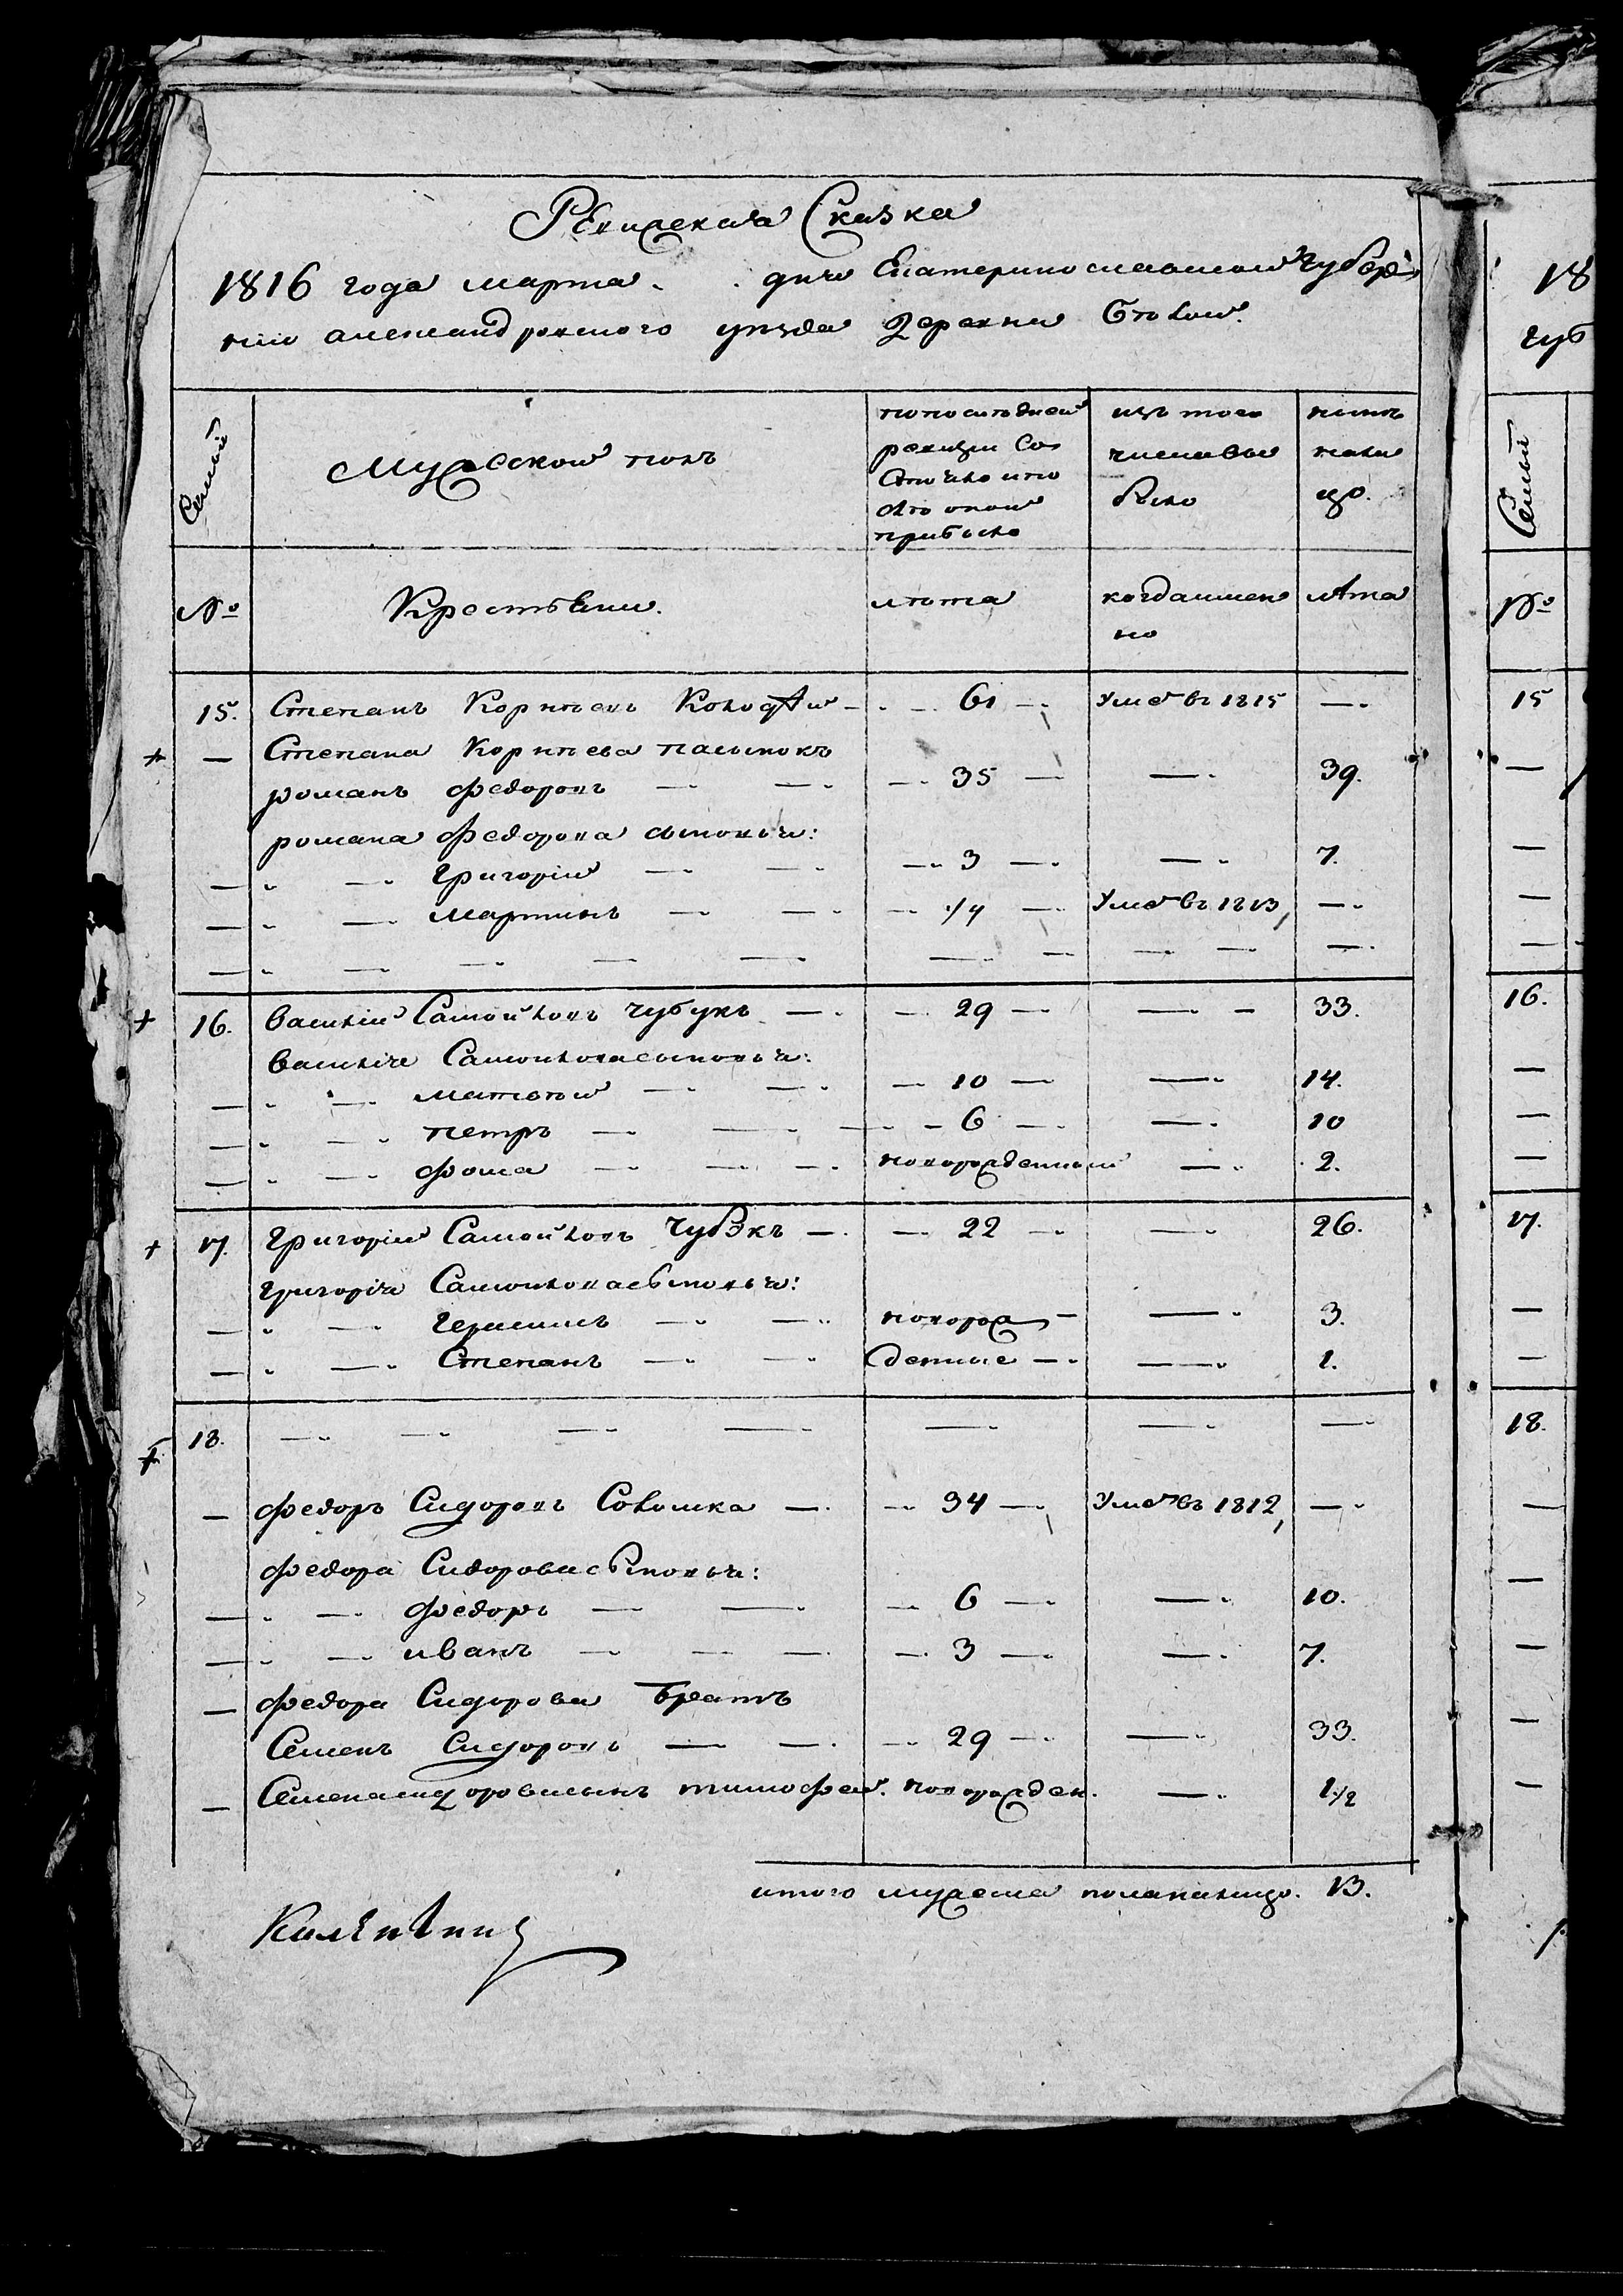 Ревизская Сказка
1816 года марта . . дня Екатеринославской губер
нии александровского уѣзда деревни Бѣлой
Семьи
Мужеской полъ
по послѣдней ревизии Состояло и по слѣ оной прибыло
изъ того числа вы было
нынѣ нали цо.
№
Крестьяни.
лѣта
когда имен но
лѣта
15. Степанъ Корнѣевъ Колодѣй — 61 — Умеръ въ 1815 —
— Степана Корнѣева пасынокъ
романъ федоровъ — — 35 — — 39.
романа федорова сыновья:
— Григорій — — 3 — — 7.
— мартинъ — — 1/4 — Умеръ въ 1813, —
16. василий Самойловъ чубукъ — 29 — — 33.
василия Самойлова сыновья:
— матвѣй — — 10 — — 14.
— петръ — — 6 — — 10
— фома — — новорожденной — 2.
17. григорий Самойловъ Чубукъ — 22 — — 26.
григорія Самойлова сыновья:
— герасимъ — — новорож — — 3.
— Степанъ — — денные — — 1.
18. — — — — — — —
— федоръ Сидоровъ Соломка — 34 — Умеръ въ 1812, —
федора Сидорова сыновья:
— федоръ — — 6 — — 10.
— иванъ — — 3 — — 7.
— федора Сидорова братъ
Семенъ Сидоровъ — — 29 — — 33.
— Семена сидорова сынъ тимофей. новорожден. — 1 1/2
итого мужеска пола на лицо. 13.
18
губ
Семьи
№
15
16.
17.
18.